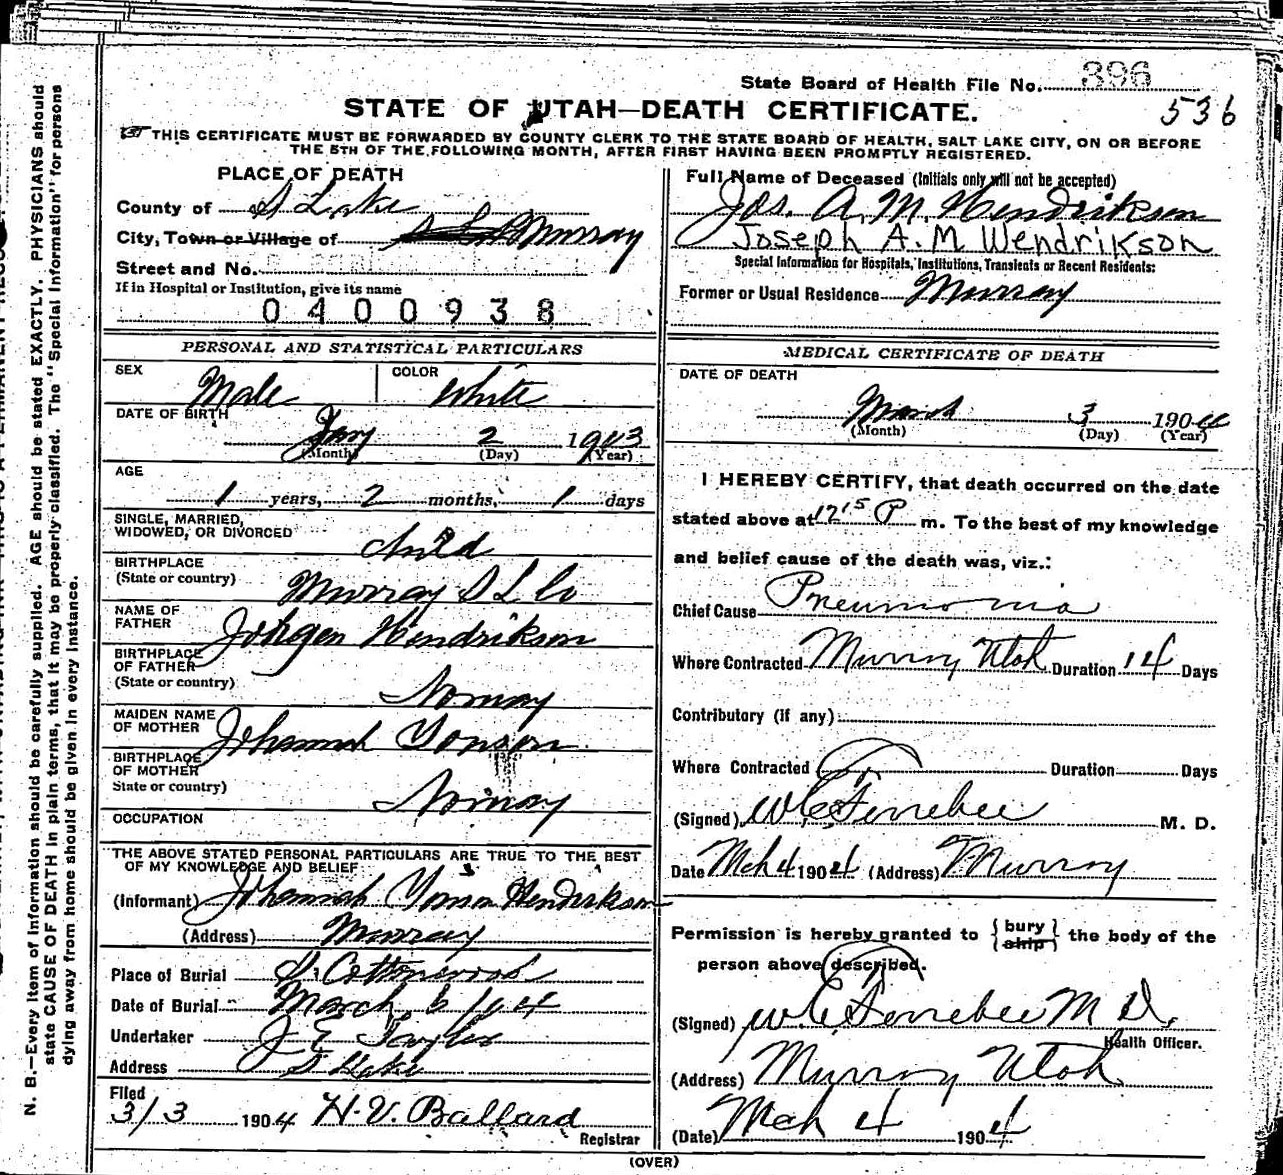 State Board of Health File No. 396
STATE OF UTAH—DEATH CERTIFICATE.
536
THIS CERTIFICATE MUST BE FORWARDED BY COUNTY CLERK TO THE STATE BOARD OF HEALTH, SALT LAKE CITY, ON OR BEFORE
THE 5TH OF THE FOLLOWING MONTH, AFTER FIRST HAVING BEEN PROMPTLY REGISTERED.
PLACE OF DEATH
County of S Lake
City, Town or Village of Murray
Street and No.
If in Hospital or Institution, give its name
0400938
PERSONAL AND STATISTICAL PARTICULARS
SEX Male COLOR White
DATE OF BIRTH
Jany 2 1903
(Month) (Day) (Year)
AGE
1 years, 2 months, 1 days
SINGLE, MARRIED,
WIDOWED, OR DIVORCED child
BIRTHPLACE
(State or country) Murray S L Co
NAME OF
FATHER Johgen Hendrikson
BIRTHPLACE
OF FATHER
(State or country) Norway
MAIDEN NAME
OF MOTHER Johannah Yonson
BIRTHPLACE
OF MOTHER
State or country) Norway
OCCUPATION
THE ABOVE STATED PERSONAL PARTICULARS ARE TRUE TO THE BEST
OF MY KNOWLEDGE AND BELIEF
(Informant) Johannah Yonson Hendrikson
(Address) Murray
Place of Burial S. Cottonwood
Date of Burial March 6 / 04
Undertaker J E Taylor
Address S Lake
Filed
3/3 1904 H. V. Ballard
Registrar
Full Name of Deceased (Initials only will not be accepted)
Jos. A. M. Hendrikson
Joseph A. M Wendrikson
Special Information for Hospitals, Institutions, Transients or Recent Residents:
Former or Usual Residence Murray
MEDICAL CERTIFICATE OF DEATH
DATE OF DEATH
March 3 1904
(Month) (Day) (Year)
I HEREBY CERTIFY, that death occurred on the date
stated above at 12 15 P m. To the best of my knowledge
and belief cause of the death was, viz.:
Chief Cause Pneumonia
Where Contracted Murray Utah Duration 14 Days
Contributory (if any)
Where Contracted Duration Days
(Signed) W C Ferrebee M. D.
Date Mch 4 1904 (Address) Murray
Permission is hereby granted to { bury ship } the body of the
person above described.
(Signed) W C Ferrebee M D.
Health Officer.
(Address) Murray Utah
(Date) Mch 4 1904
(OVER)
N. B.—Every item of information should be carefully supplied. AGE should be stated EXACTLY. PHYSICIANS should
state CAUSE OF DEATH in plain terms, that it may be properly classified. The "Special Information" for persons
dying away from home should be given in every instance.